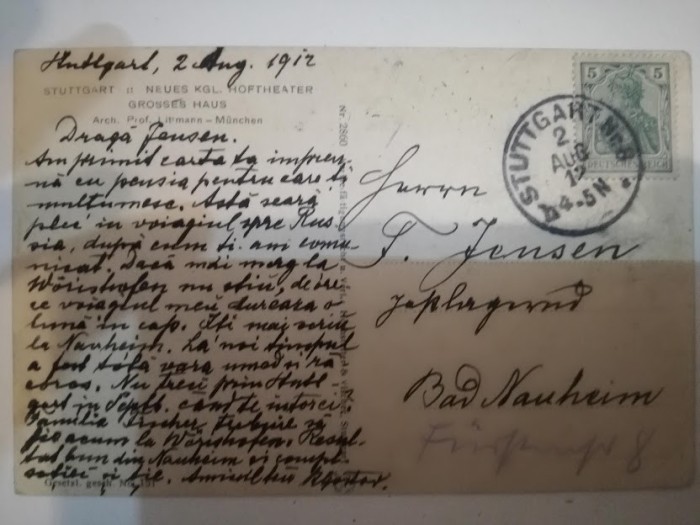 Stuttgart, 2 Aug. 1912
STUTTGART :: NEUES KGL. HOFTHEATER
GROSSES HAUS
Arch. Prof. Littmann — München
Dragă Jensen.
Am primit carta ta impreu-
nă cu pensia pentru care îți
multumesc. Astă seară
plec in voiagiul spre Rus-
sia, după cum ti am comu-
nicat. Dacă mai merg la
Wörishofen nu stiu, deoare-
ce voiagiul meu durează o
lună in cap. Iti mai scriu
la Nauheim. La noi timpul
a fost totă vara umed si ră-
coros. Nu treci prin Stutt
gart in Septb. când te intorci
Familia Fischer trebuie să
fie acum la Wörishofen. Resul-
tat bun din Nauheim si compl-
si fie. Amicul tău Nestor.
Gesetzl. gesch. No. 151
Nr. 2890
Herrn
T. Jensen
Bad Nauheim
8
STUTTGART No. 8
2
AUG
12
4-5 N
5 5
DEUTSCHES REICH